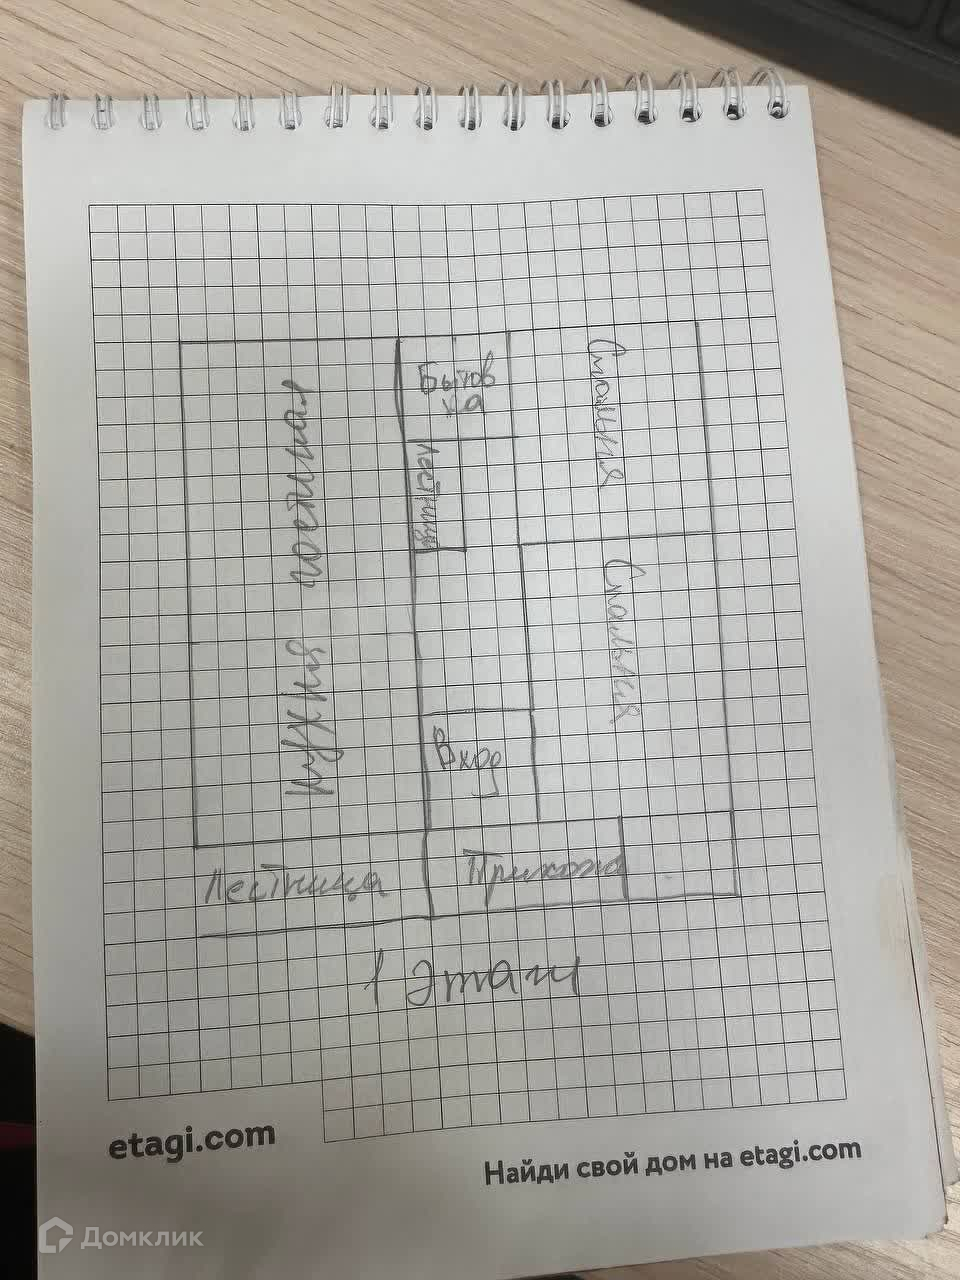 Бытов
ка
Спальня
гостиная
Лестница
Спальня
кухня
Вход
Лестница
Прихожа
1 этаж
etagi.com
Найди свой дом на etagi.com
Домклик